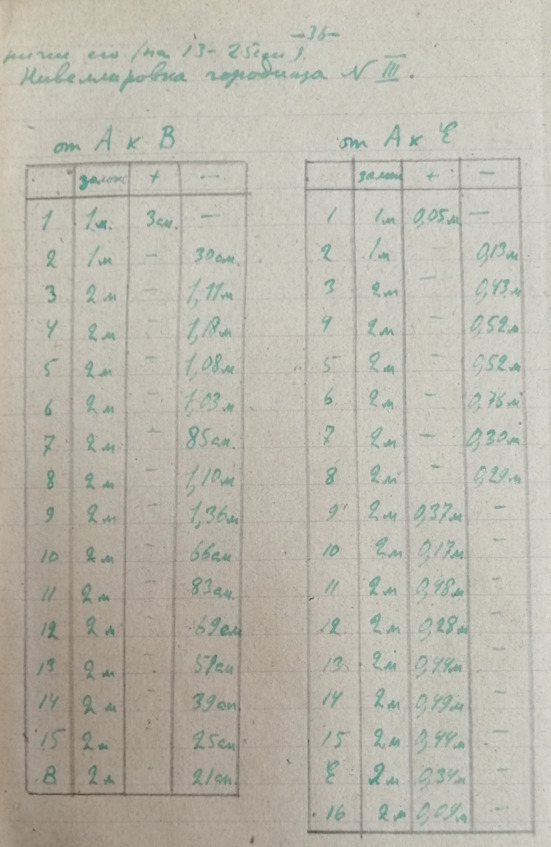 -36-
его (на 13-25см).
Нивеллировка городища N III.
от А к В
залож + —
1 1м. 3см. —
2 1м — 30см.
3 2м — 1,11м
4 2м — 1,18м
5 2м — 1,08м
6 2м — 1,03м
7 2м — 85см.
8 2м — 1,10м
9 2м — 1,36м
10 2м — 66см
11 2м — 83см.
12 2м — 69см
13 2м — см
14 2м — 39см.
15 2м — 25см
В 2м — 21см.
от А к Е
залож + —
1 1м 0,05м —
2 1м — 0,13м
3 2м — 0,43м
4 2м — 0,52м
5 2м — 0,52м
6 2м — 0,76м
7 2м — 0,30м
8 2м — 0,29м
9 2м 0,37м —
10 2м 0,17м —
11 2м 0,48м —
12 2м 0,28м —
13 2м 0,44м —
14 2м 0,49м —
15 2м 0,44м —
Е 2м 0,34м —
16 2м 0,09м —